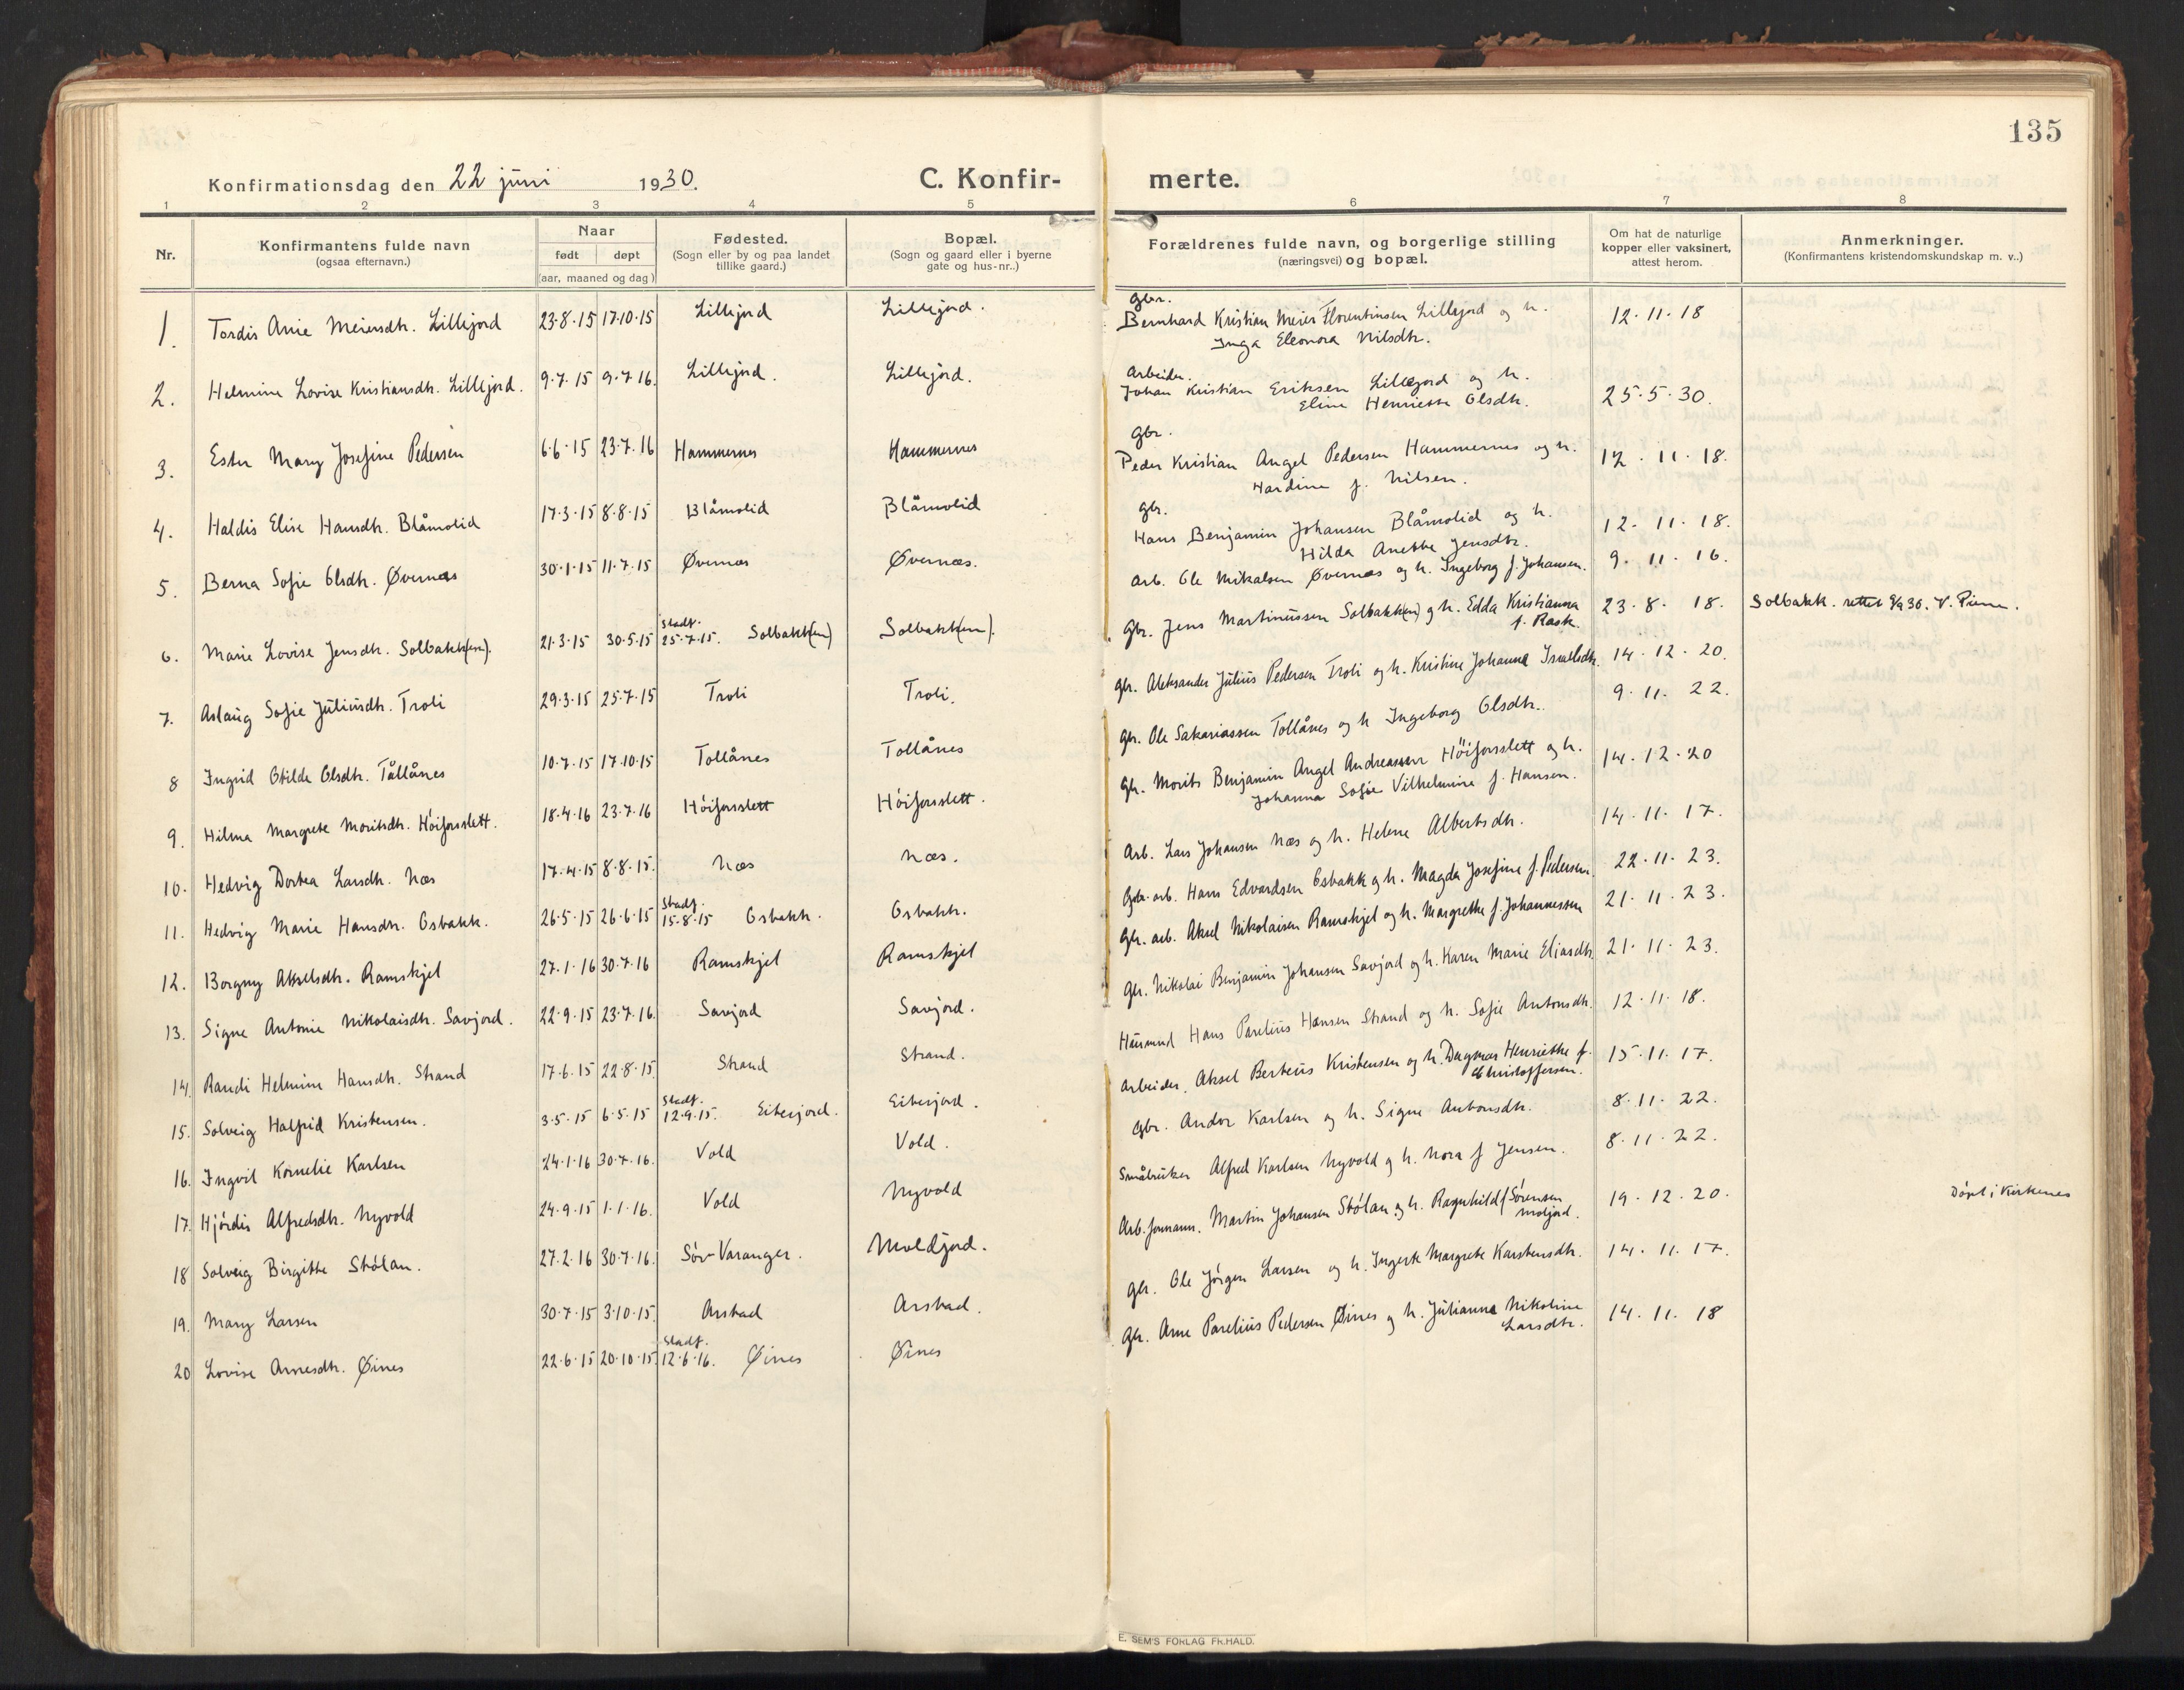 135
Konfirmationsdag den 22 juni 1930.
C. Konfir- merte.
1 2 3 4 5 6 7 8
Nr.
Konfirmantens fulde navn
(ogsaa efternavn.)
Naar
født døpt
(aar, maaned og dag)
Fødested.
(Sogn eller by og paa landet
tillike gaard.)
Bopæl.
(Sogn og gaard eller i byerne
gate og hus-nr..)
Forældrenes fulde navn, og borgerlige stilling
(næringsvei) og bopæl.
Om hat de naturlige
kopper eller vaksinert,
attest herom.
Anmerkninger.
(Konfirmantens kristendomskundskap m. v..)
1. Tordis Arnie Meiersdtr. Lillejord 23·8·15 17·10·15 Lillejord Lillejord.
Gbr.
Bernhard Kristian Meier Florentinsen Lillejord og h. 12·11·18
Inga Eleonora Nilsdtr.
2. Helmine Lovise Kristiansdtr. Lillejord. 9·7·15 9·7·16. Lillejord. Lillejord.
Arbeider.
Johan Kristian Eriksen Lillejord og h. 25·5·30.
Eline Henriette Olsdtr.
3. Ester Mary Josefine Pedersen 6·6·15 23·7·16 Hammernes Hammernes
Gbr.
Peder Kristian Angel Pedersen Hammernes og h. 12·11·18.
Hardine f. Nilsen.
4. Haldis Elise Hansdtr. Blåmolid 17·3·15 8·8·15 Blåmolid Blåmolid
gbr.
Hans Benjamin Johansen Blåmolid og h. 12·11·18.
Hilda Anette Jensdtr.
5. Berna Sofie Olsdtr. Øvernæs 30·1·15 11·7·15 Øvernæs Øvernæs.
Arb. Ole Mikalsen Øvernæs og h. Ingeborg f. Johansen. 9·11·16.
6. Marie Lovise Jensdtr. Solbakk(en). 21·3·15 30·5·15 Stadf. 25·7·15. Solbakk(en) Solbakk(en).
Gbr. Jens Martinussen Solbakk(en) og h. Edda Kristianna 23·8·18. Solbakk. rettet
f. Rask.
7. Aslaug Sofie Juliusdtr. Troli 29·3·15 25·7·15 Troli Troli.
gbr. Aleksander Julius Pedersen Troli og h. Kristine Johanna Israelsdtr. 14·12·20.
8 Ingrid Otilde Olsdtr. Tållånes 10·7·15 17·10·15 Tollånes Tollånes
gbr. Ole Sakariassen Tollånes og h Ingeborg Olsdtr. 9·11·22.
9. Hilma Margrete Moritsdtr. Höiforsslett. 18·4·16 23·7·16 Höiforsslett Höiforsslett.
Gbr. Morits Benjamin Angel Andreassen Höiforsslett og h. 14·12·20
Johanna Sofie Vilhelmine f. Hansen.
10. Hedvig Dortea Larsdtr. Næs 17·4·15 8·8·15. Næs Næs.
Arb. Lars Johansen Næs og h. Helene Albertsdtr. 14·11·17.
11. Hedvig Marie Hansdtr. Osbakk. 26·5·15 26·6·15 Stadf. 15·8·15 Osbakk. Osbakk.
Gbr. arb. Hans Edvardsen Osbakk og h. Magda Josefine f. Pedersen. 22·11·23.
12. Borgny Akselsdtr. Ramskjel 27·1·16 30·7·16 Ramskjel Ramskjel
Gbr. arb. Aksel Nikolaisen Ramskjel og h. Margrethe f. Johannessen 21·11·23.
13. Signe Antonie Nikolaisdtr. Savjord. 22·9·15 23·7·16. Savjord Savjord.
Gbr. Nikolai Benjamin Johansen Savjord og h. Karen Marie Eliasdtr. 21·11·23.
14. Randi Helmine Hansdtr. Strand 17·6·15 22·8·15. Strand Strand.
Husmand Hans Parelius Hansen Strand og h. Sofie Antonsdtr. 12·11·18.
15. Solveig Halfrid Kristensen. 3·5·15 6·5·15 Stadf. 12·9·15. Eiterjord. Eiterjord.
Arbeider. Aksel Berteus Kristensen og h. Dagmar Henriette f. 15·11·17.
Christoffersen.
16. Ingvil Kornelie Karlsen 24·1·16 30·7·16. Vold Vold.
Gbr. Andor Karlsen og h. Signe Antonsdtr. 8·11·22.
17. Hjördis Alfredsdtr. Nyvold 24·9·15 1·1·16. Vold Nyvold
Småbruker Alfred Karlsen Nyvold og h. Nora f Jensen. 8·11·22.
18 Solveig Birgitte Stölan. 27·2·16 30·7·16. Sör-Varanger. Moldjord.
Arb. formann. Martin Johansen Stölan og h. Ragnhild f Sörensen 19·12·20. Döpt i Kirkenes
Moljord.
19. Mary Larsen 30·7·15 3·10·15. Arstad Arstad.
gbr. Ole Jörgen Larsen og h. Ingerte Margrete Karstensdtr. 14·11·17.
20 Lovise Arnesdtr. Øines 22·6·15 20·10·15. Stadf. 12·6·16. Øines Øines
Gbr. Arne Parelius Pedersen Øines og h. Julianna Nikoline 14·11·18
Larsdtr.
E. SEM'S FORLAG FR.HALD.